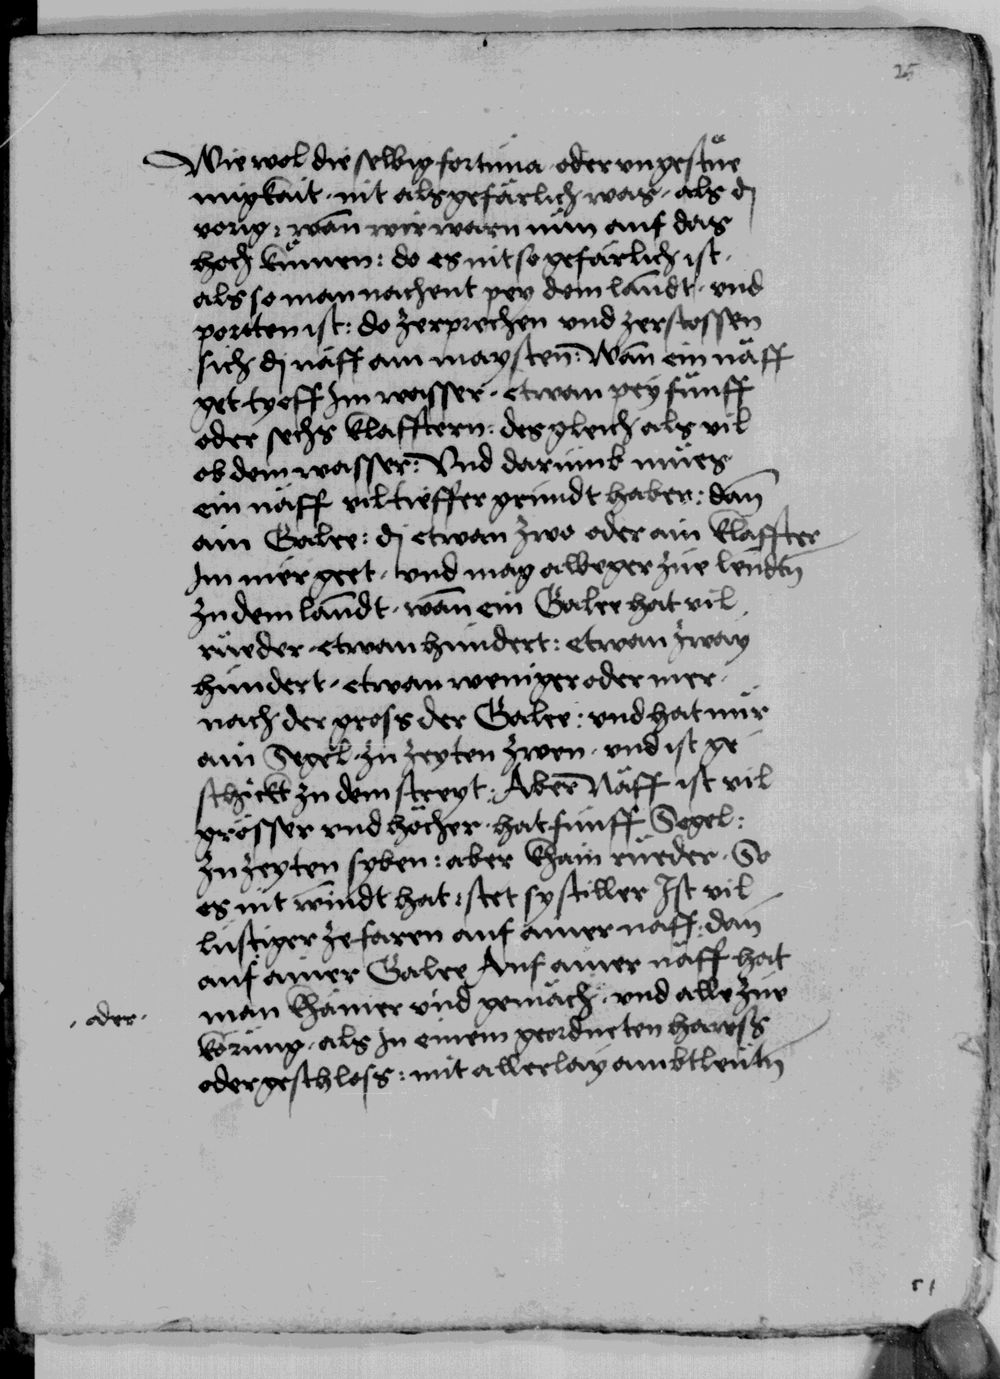 25
Wie wol die selbig fortuna oder vngestüe
migkait · nit als gefärlich was · als dj
vorig: wan̄ wir warn nün auf das
hoch kümen: do es nit so gefärlich ist ·
als so man nachent pey dem landt · vnd
portten ist: do zerprechen vnd zerstossen
sich dj näff am maysten: Wan̄ ein näff
get tyeff Im wasser · etwan pey fünff
oder sechs klafftern: desgleich als vil
ob dem wasser: Vnd darümb mües
ein näff vil tieffer gründt haben: dan̄
ain Galee: dj etwan zwo oder ain klaffter
Im mer geet · vnd mag alweger züe lendtn̄
zu dem landt · wan̄ ein Galee hat vil
rüeder · etwan hündert: etwan zway
hündert · etwan weniger oder mer ·
nach der gross der Galee: vnd hat nür
ain Segel · zu zeyten zwen · vnd ist ge
schickt zu dem streyt: Aber Näff ist vil
grösser vnd höcher · hat fünff Segel:
zu zeyten syben: aber khain rüeder · So
es nit windt hat: stet sy stiller Ist vil
lüstiger ze faren auf ainer naff: dan̄
auf ainer Galee Auf ainer näff hat
man khamer vnd gemäch · vnd alle züe
· oder ·
körüng · als In einem geordneten hawss
oder geschloss: mit allerlay ambtleütn̄
51